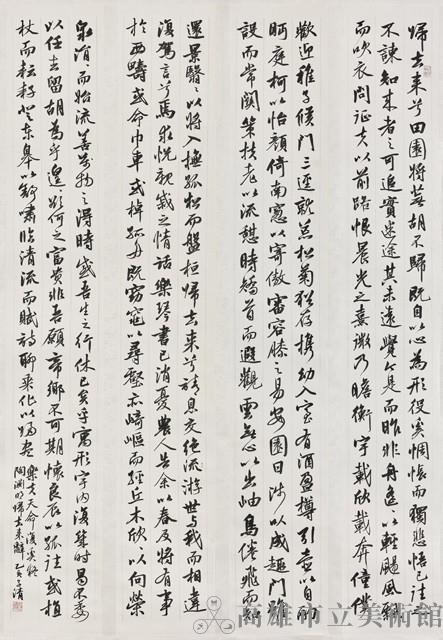 歸去來兮田園將蕪胡不歸既自以心為形役奚惆悵而獨悲悟已往之
不諫知來者之可追實迷途其未遠覺今是而昨非舟遙〻以輕颺風飄〻
而吹衣問征夫以前路恨晨光之熹微乃瞻衡宇載欣載奔僮僕
歡迎稚子候門三逕就荒松菊猶存攜幼入室有酒盈樽引壺以自酌
眄庭柯以怡顏倚南窗以寄傲審容膝之易安園日涉以成趣門雖
設而常關策扶老以流憩時矯首而遐觀雲無心以出岫鳥倦飛而知
還景翳〻以將入撫孤松而盤桓歸去來兮請息交絕游世與我而相違
復駕言兮焉求悅親戚之情話樂琴書以消憂農人告余以春及將有事
於西疇或命巾車或棹孤舟既窈窕以尋壑亦崎嶇而經丘木欣〻以向榮
泉涓〻而始流善萬物之得時感吾生之行休已矣乎寓形宇內復幾時曷不委
以任去留胡為乎遑〻欲何之富貴非吾願帝鄉不可期懷良辰以孤往或植
杖而耘耔登東皋以舒嘯臨清流而賦詩聊乘化以歸盡
樂夫天命復奚疑
陶淵明歸去來辭 乙亥 子清
高雄市立美術館